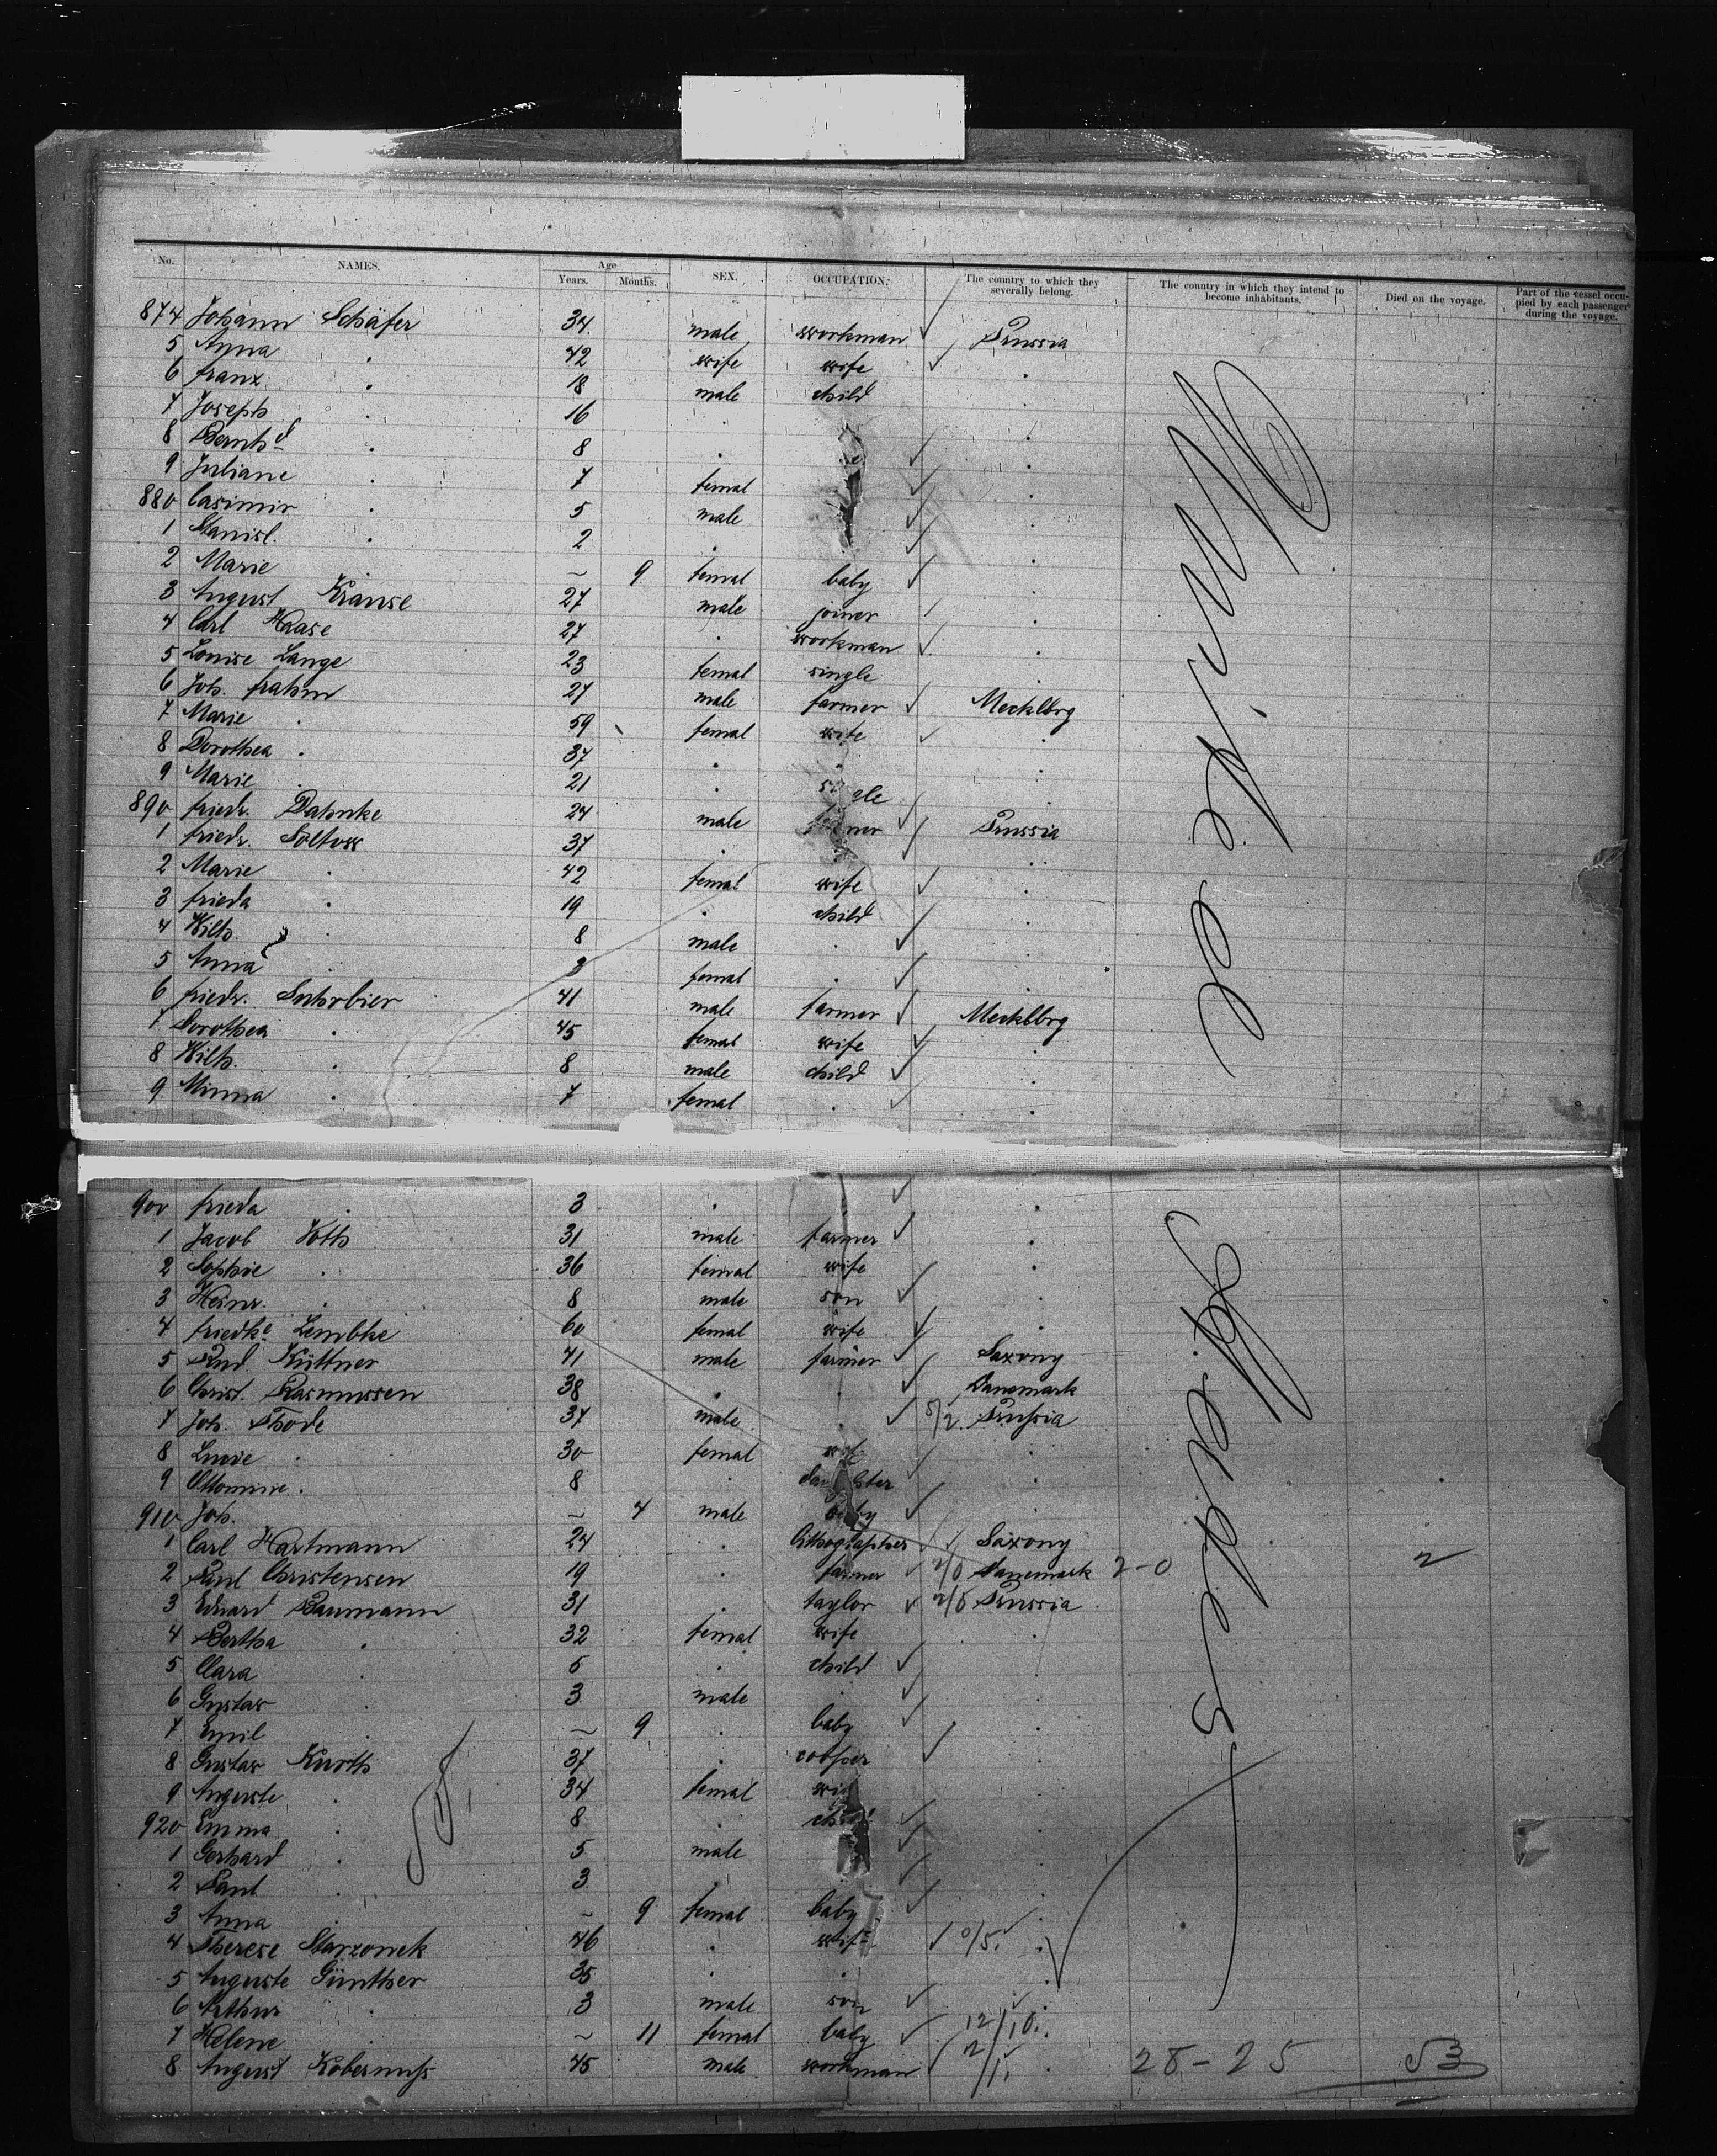 No. NAMES. Age Years. Months. SEX. OCCUPATION. The country to which they severally belong. The country in which they intend to become inhabitants. Died on the voyage. Part of the vessel occupied by each passenger during the voyage.
874 Johann Schäfer 34 male workman Prussia
5 Anna . 42 wife wife .
6 Franz . 18 male child .
7 Joseph . 16 . .
8 Bernhd . 8 . .
9 Juliane . 7 femal .
880 Casimir . 5 male .
1 Stanisl. . 2 . .
2 Marie . – 9 femal baby .
3 August Krause 27 male joiner .
4 Carl Haase 27 . workman .
5 Louise Lange 23 femal single .
6 Joh. Frahm 27 male farmer Mecklbrg
7 Marie . 59 femal wife .
8 Dorothea . 37 . . .
9 Marie . 21 . single .
890 Friedr. Dahnke 24 male farmer Prussia
1 Friedr. Soltow 37 . .
2 Marie . 42 femal wife .
3 Frieda . 19 . child .
4 Wilh. . 8 male . .
5 Anna . 3 femal . .
6 Friedr. Suhrbier 41 male farmer Mecklbrg
7 Dorothea . 45 femal wife .
8 Wilh. . 8 male child .
9 Minna . 7 femal . .
900 Frieda . 3 . .
1 Jacob Voth 31 male farmer .
2 Sophie . 36 femal wife .
3 Heinr. . 8 male son .
4 Friedke Lembke 60 femal wife .
5 Rud. Küttner 41 male farmer Saxony
6 Christ. Rasmussen 38 . . Danemark
7 Joh. Thode 37 male . 5/2. Prussia
8 Lucie . 30 femal wife .
9 Ottomine . 8 . daughter .
910 Joh. – 4 male baby .
1 Carl Hartmann 24 . lithographer Saxony
2 Paul Christensen 19 . farmer 2/0 Danemark 2-0 2
3 Eduard Baumann 31 . taylor 2/5 Prussia
4 Bertha . 32 femal wife .
5 Clara . 5 . child .
6 Gustav . 3 male . .
7 Emil . – 9 . baby .
8 Gustav Kurth 37 . cooper .
9 Auguste . 34 femal wife
920 Emma . 8 . child
1 Gerhard . 5 male
2 Paul . 3 .
3 Anna . – 9 femal baby .
4 Therese Starzonek 46 . wife 0/5. .
5 Auguste Günther 35 . . .
6 Arthur . 3 male son .
7 Helene . – 11 femal baby 12/10. .
8 August Kobernuss 45 male workman 2/1. . 28-25 53
United
States